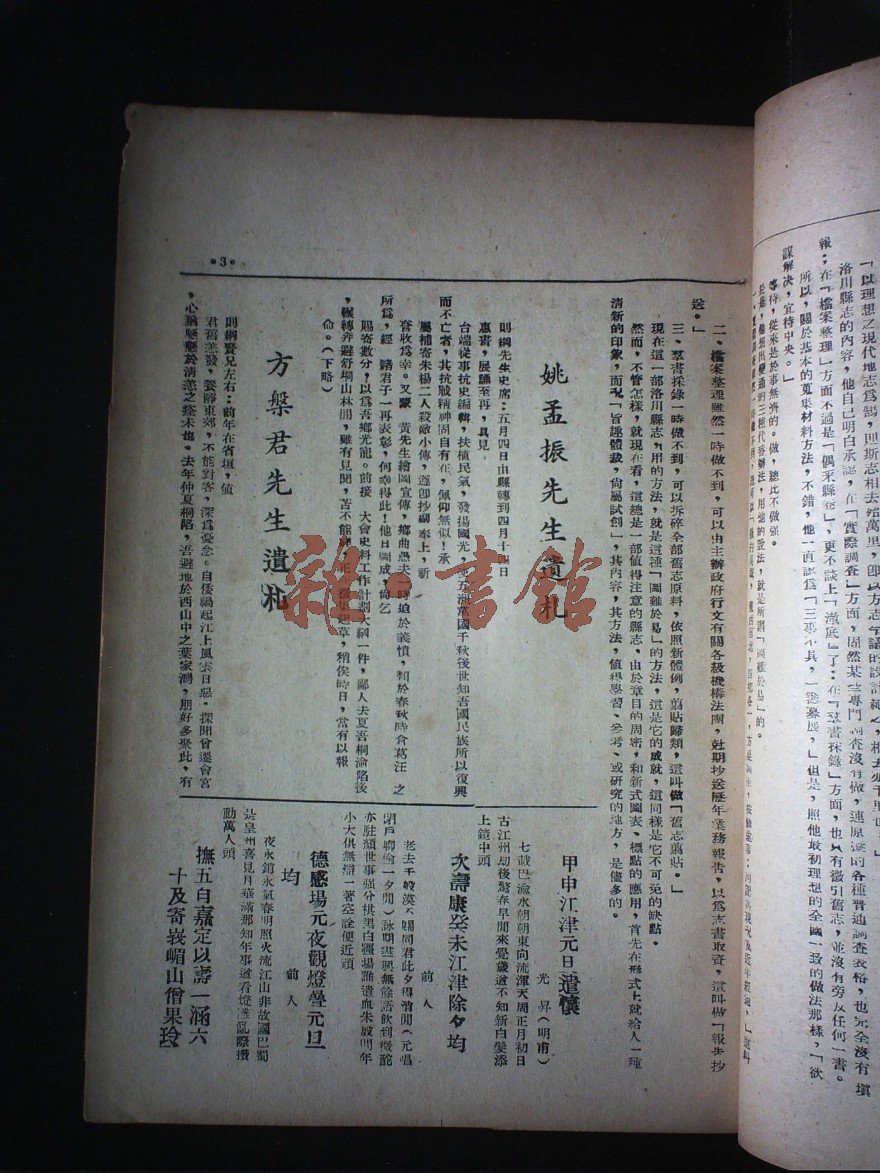 「以理想之現代地志爲鵠,則斯志相去
洛川縣志的內容,他自己明白承認,在「實際調查」方面,固然某些專門調查沒有做,連原
報;在「檔案整理」方面不過是「偶采縣卷」,更不談上「澈底」了;在「羣書採錄」方面,也只有徵引舊志,並沒有旁及任何一書。
所以,關於基本的蒐集材料方法,不錯,他一直認爲「三事不具,一籌莫展,」但是,照他最初理想的全國一致的做法那樣,「欲
謀解决,宜待中央。」
等待,從來是於事無濟的。做,總比不做强。
二、檔案整理雖然一時做不到,可以由主辦政府行文有關各級機構法團,尅期抄送歷年業務報告,以爲志書取資,這叫做「報告抄
送。」
三、羣書採錄一時做不到,可以拆碎全部舊志原料,依照新體例,剪貼歸類,這叫做「舊志剪貼。」
現在這一部洛川縣志,用的方法,就是這種「圖難於易」的方法,這是它的成就,這同樣是它不可免的缺點。
然而,不管怎樣,就現在看,這總是一部值得注意的縣志,由於章目的周密,和新式圖表、標點的應用,首先在形式上就給人一種
清新的印象,而況「旨趣體裁,尙屬試創」,其內容,其方法,値得學習、參考、或硏究的地方,是儘多的。
姚孟振先生遺札
則綱先生史席:五月四日由縣轉到四月十四日
惠書,展誦至再,具見
台端從事抗史編輯,扶植民氣,發揚國光,
萬國千秋後世知吾國民族所以復興
而不亡者,其抗戰精神固自有在,佩仰無似!承
屬補寄朱楊二人殺敵小傳,遵卽抄副奉上,祈
詧收爲幸。又蒙 黃先生繪圖宣傳,鄉曲愚夫
時迫於義憤,類於春秋時貪葛汪 之
所爲,經 諸君子一再表彰,何幸得此!他日圖成,尙乞
賜寄數分,以爲吾鄉光寵。前接 大會史料工作計劃大綱一件,鄙人去夏吾桐淪陷後
,輾轉奔避舒桐山林間,雖有見聞,苦不能
起草,稍俟時日,當有以報
命。(下略)
方槃君先生遺札
則綱賢兄左右:前年在省垣,値
君舊恙發,養靜東郊,不能對客,深爲憂念。自倭禍起江上風雲日惡,探聞曾遷會宮
,心猶懸懸於清恙之痊未也。去年仲夏桐陷,吾避地於西山中之葉家灣,朋好多聚此,有
甲申江津元日遣懷
光 昇(明甫)
七載巴渝水朝朝東向流渾天周正月初日
古江州劫後驚春早閒來覺歲遒不知新白髮添
上鏡中頭
次壽康癸未江津除夕均
前 人
老去千殺漠不關同君此夕得消閒(元唱
閉戶聊偷一夕閒)詠期盡興無餘語飲到微酡
亦駐顏世事強分棋黑白戰場誰遣血朱殷明年
小大俱無辯一著空詮便近頑
德感場元夜觀燈疊元旦
均
前 人
夜永銷永氣春明照火流江山非故國巴蜀
是皇州喜見月華滿那知年事遒看燈雜亂際攢
動萬人頭
撫五自嘉定以壽一涵六
十及寄峩嵋山僧果玲
•3•
雜·書館